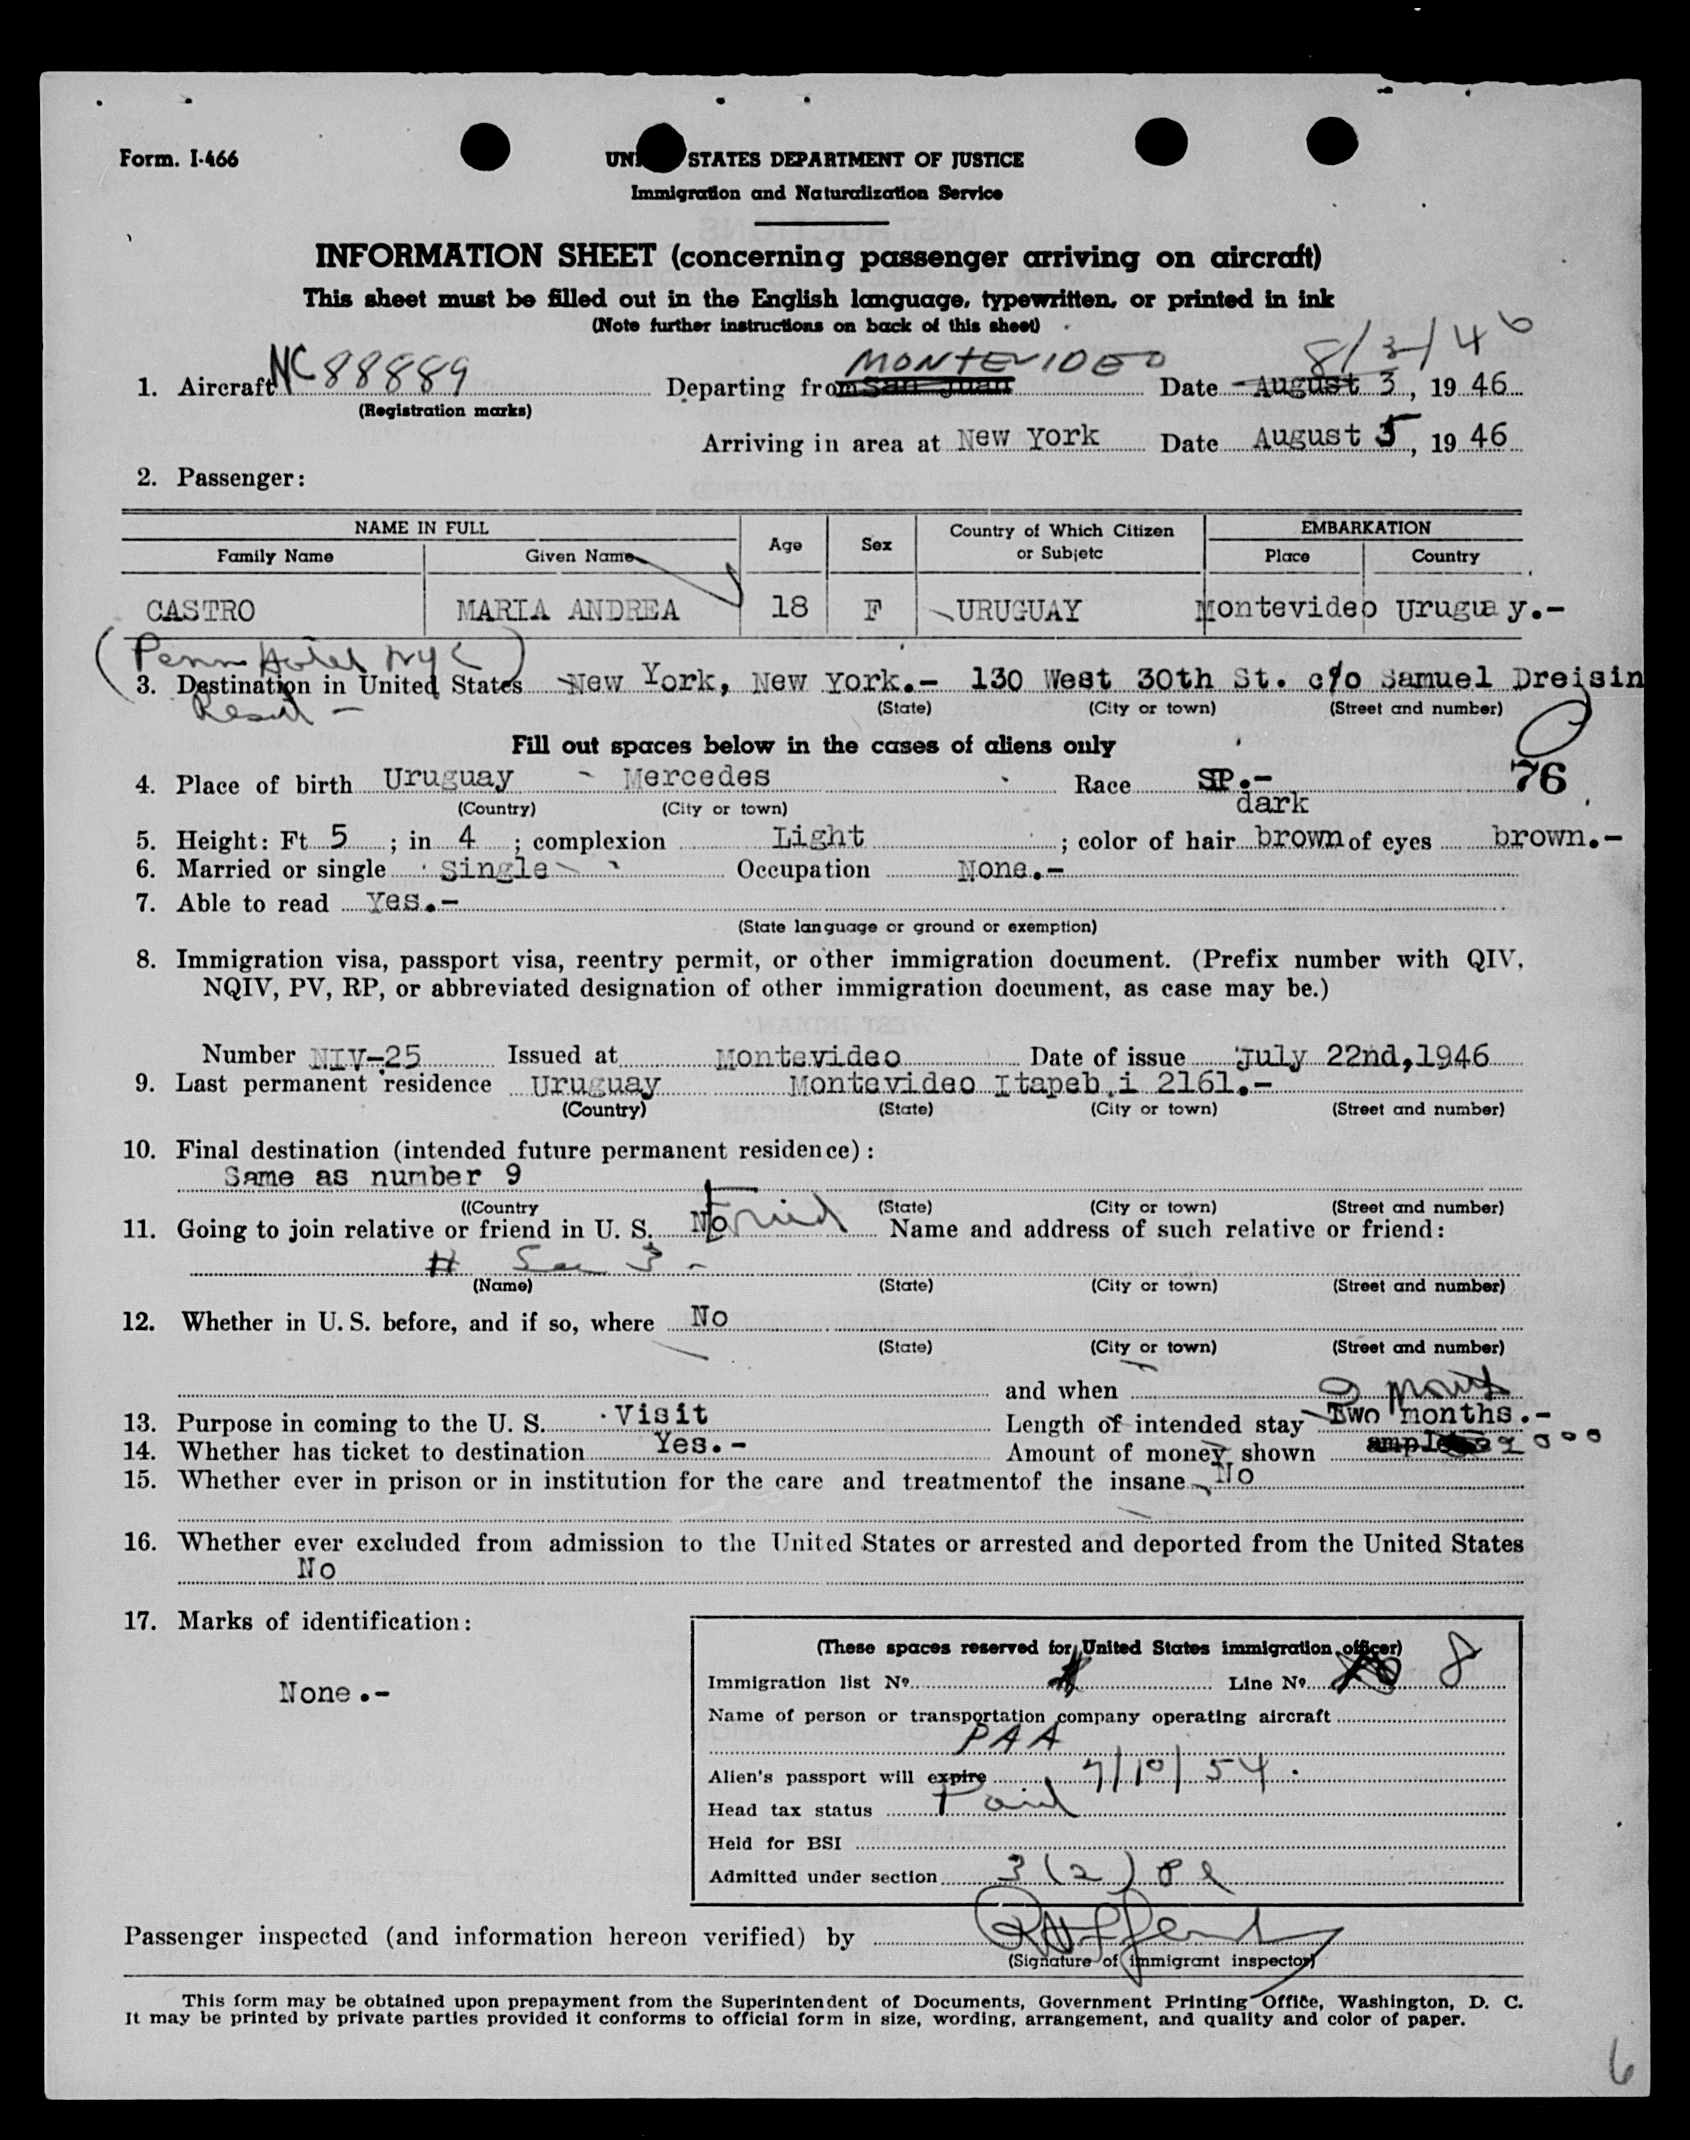 Form. I-466
UNI STATES DEPARTMENT OF JUSTICE
Immigration and Naturalization Service
INFORMATION SHEET (concerning passenger arriving on aircraft)
This sheet must be filled out in the English language, typewritten, or printed in ink
(Note further instructions on back of this sheet)
MONTEVIDEO 8/3/46
1. Aircraft NC 88889 Departing from San Juan Date August 3, 19 46
(Registration marks)
Arriving in area at New York Date August 5, 19 46
2. Passenger:
NAME IN FULL Age Sex Country of Which Citizen or Subjetc EMBARKATION
Family Name Given Name Place Country
CASTRO MARIA ANDREA 18 F URUGUAY Montevideo Uruguay.-
(Penn Hotel NYC)
3. Destination in United States New York, New York.- 130 West 30th St. c/o Samuel Dreisin
(State) (City or town) (Street and number)
Fill out spaces below in the cases of aliens only
76
4. Place of birth Uruguay - Mercedes Race SP.-
(Country) (City or town) dark
5. Height: Ft 5 ; in 4 ; complexion Light ; color of hair brown of eyes brown.-
6. Married or single Single Occupation None.-
7. Able to read Yes.-
(State language or ground or exemption)
8. Immigration visa, passport visa, reentry permit, or other immigration document. (Prefix number with QIV,
NQIV, PV, RP, or abbreviated designation of other immigration document, as case may be.)
Number NIV-25 Issued at Montevideo Date of issue July 22nd,1946
9. Last permanent residence Uruguay Montevideo Itapebi 2161.-
(Country) (State) (City or town) (Street and number)
10. Final destination (intended future permanent residence):
Same as number 9
((Country (State) (City or town) (Street and number)
11. Going to join relative or friend in U. S. No Friend Name and address of such relative or friend:
# See 3 -
(Name) (State) (City or town) (Street and number)
12. Whether in U. S. before, and if so, where No
(State) (City or town) (Street and number)
and when
13. Purpose in coming to the U. S. Visit Length of intended stay Two months.-
14. Whether has ticket to destination Yes.- Amount of money shown
15. Whether ever in prison or in institution for the care and treatmentof the insane No
16. Whether ever excluded from admission to the United States or arrested and deported from the United States
No
17. Marks of identification:
None.-
(These spaces reserved for United States immigration officer)
Immigration list No. Line No. 8
Name of person or transportation company operating aircraft
PAA
Alien's passport will expire 7/10/54
Head tax status Paid
Held for BSI
Admitted under section 3(2)
Passenger inspected (and information hereon verified) by
(Signature of immigrant inspector)
This form may be obtained upon prepayment from the Superintendent of Documents, Government Printing Office, Washington, D. C.
It may be printed by private parties provided it conforms to official form in size, wording, arrangement, and quality and color of paper.
6